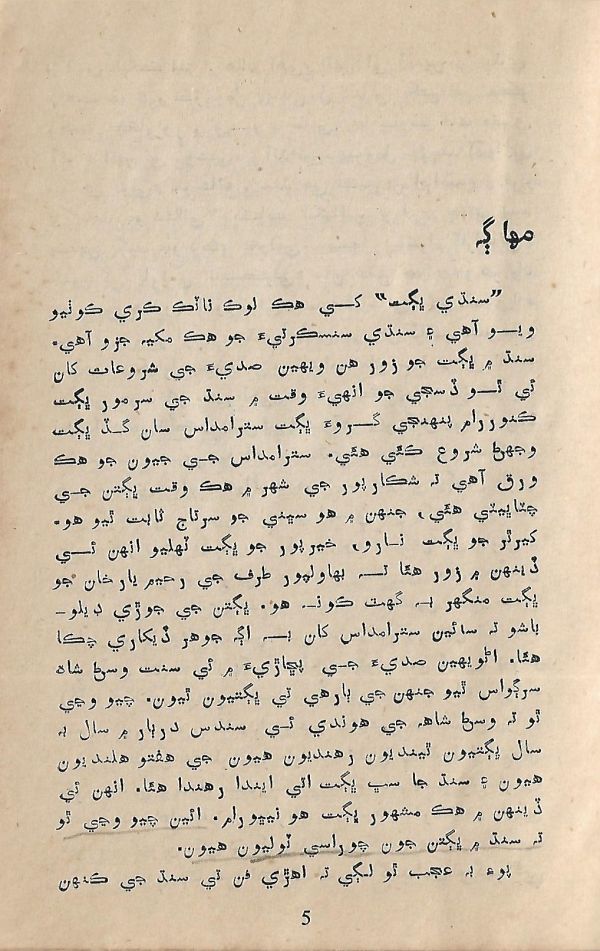 مهاڳ
”سنڌي ڀڳت“ کي هڪ لوڪ ناٽڪ ڪري ڪوٺيو
ويو آهي ۽ سنڌي سنسڪرتيءَ جو هڪ مکيہ جزو آهي.
سنڌ ۾ ڀڳت جو زور هن ويهين صديءَ جي شروعات کان
ئي ٿو ڏسجي جو انهيءَ وقت ۾ سنڌ جي سرمور ڀڳت
ڪنوررام پنهنجي گروءَ ڀڳت سترامداس سان گڏ ڀڳت
وجهڻ شروع ڪئي هئي. سترامداس جي جيون جو هڪ
ورق آهي تہ شڪارپور جي شهر ۾ هڪ وقت ڀڳتن جي
چٽاڀيٽي هئي، جنهن ۾ هو سڀني جو سرتاج ثابت ٿيو هو.
کيرٿر جو ڀڳت نارو، خيرپور جو ڀڳت ٽهليو انهن ئي
ڏينهن ۾ زور هئا تہ بهاولپور طرف جي رحيم يارخان جو
ڀڳت منگهر بہ گهٽ ڪونہ هو. ڀڳتن جي جوڙي ڊيلو-
باشو تہ سائين سترامداس کان بہ اڳ جوهر ڏيکاري چڪا
هئا. اڻويهين صديءَ جي پڇاڙيءَ ۾ ئي سنت وسڻ شاه
سرڳواس ٿيو جنهن جي ٻارهي تي ڀڳتيون ٿيون. چيو وڃي
ٿو تہ وسڻ شاهہ جي هوندي ئي سندس دربار ۾ سال بہ
سال ڀڳتيون ٿينديون رهنديون هيون جي هفتو هلنديون
هيون ۽ سنڌ جا سڀ ڀڳت اتي ايندا رهندا هئا. انهن ئي
ڏينهن ۾ هڪ مشهور ڀڳت هو نيڀورام. ائين چيو وڃي ٿو
تہ سنڌ ۾ ڀڳتن جون چوراسي ٽوليون هيون.
پوءِ بہ عجب ٿو لڳي تہ اهڙي فن تي سنڌ جي ڪنهن
5